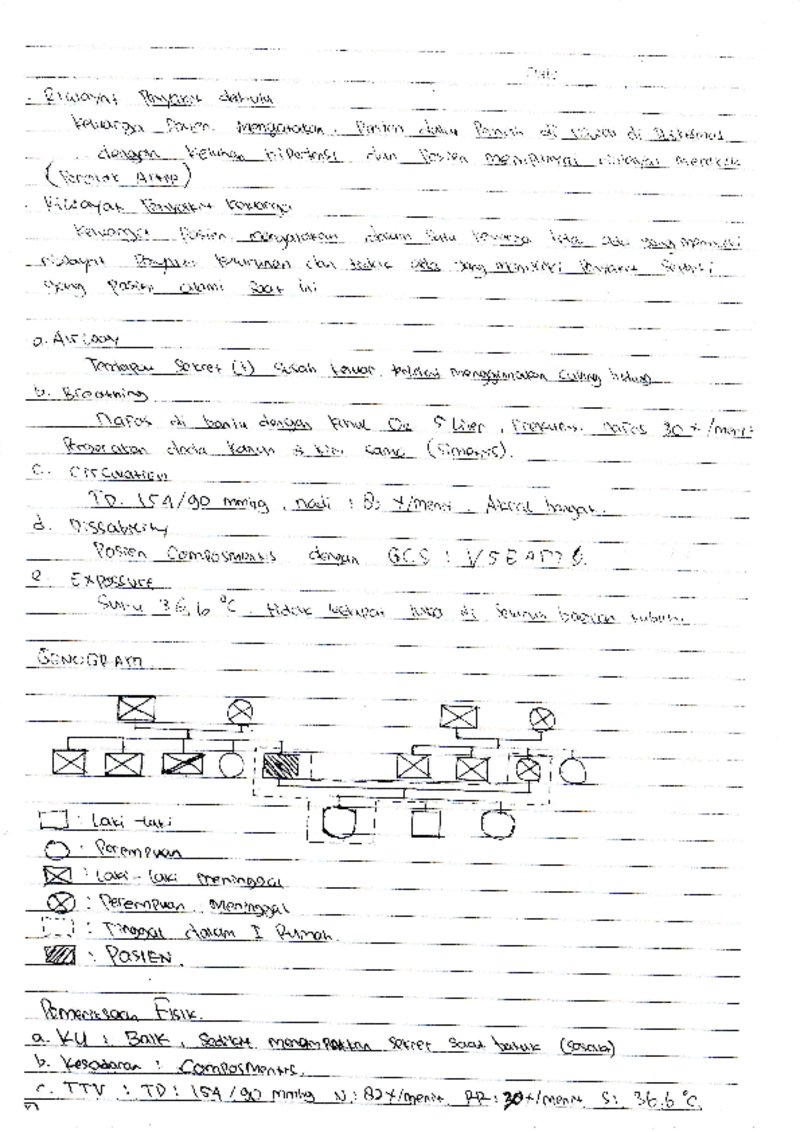 Riwayat Penyakit dahulu
Keluarga Pasien mengatakan Pasien dahulu Pernah di di Puskesmas
dengan keluhan Hipertensi dan Pasien mempunyai riwayat merokok
(Perokok Aktif)
Riwayat Penyakit keluarga
Keluarga Pasien mengatakan dalam satu keluarga tidak ada yang memiliki
riwayat Penyakit keturunan dan tidak ada yang memiliki Penyakit seperti
yang pasien alami saat ini
a. Airway
Terdapat Sekret (+) susah keluar, menggunakan cuping hidung
b. Breathing
Nafas di bantu dengan kanul O2 5 liter, Frekuensi nafas 30 x/menit
Pergerakan dada kanan & kiri sama (Simetris).
c. Circulation
TD. 154/90 mmHg, nadi : 82 x/menit. Akral hangat.
d. Dissability
Pasien Composmentis dengan GCS : V5 E4 M 6.
e. Exposure
Suhu 36,6 °C. tidak terdapat luka di seluruh bagian tubuh.
GENOGRAM
: Laki-laki
: Perempuan
: Laki-laki meninggal
: Perempuan Meninggal
: Tinggal dalam I Rumah.
: PASIEN.
Pemeriksaan Fisik.
a. KU : Baik, Sedikit sekret saat batuk
b. Kesadaran : Composmentis.
c. TTV : TD : 154/90 mmHg N : 82 x/menit RR : 30 x/menit S : 36.6 °C